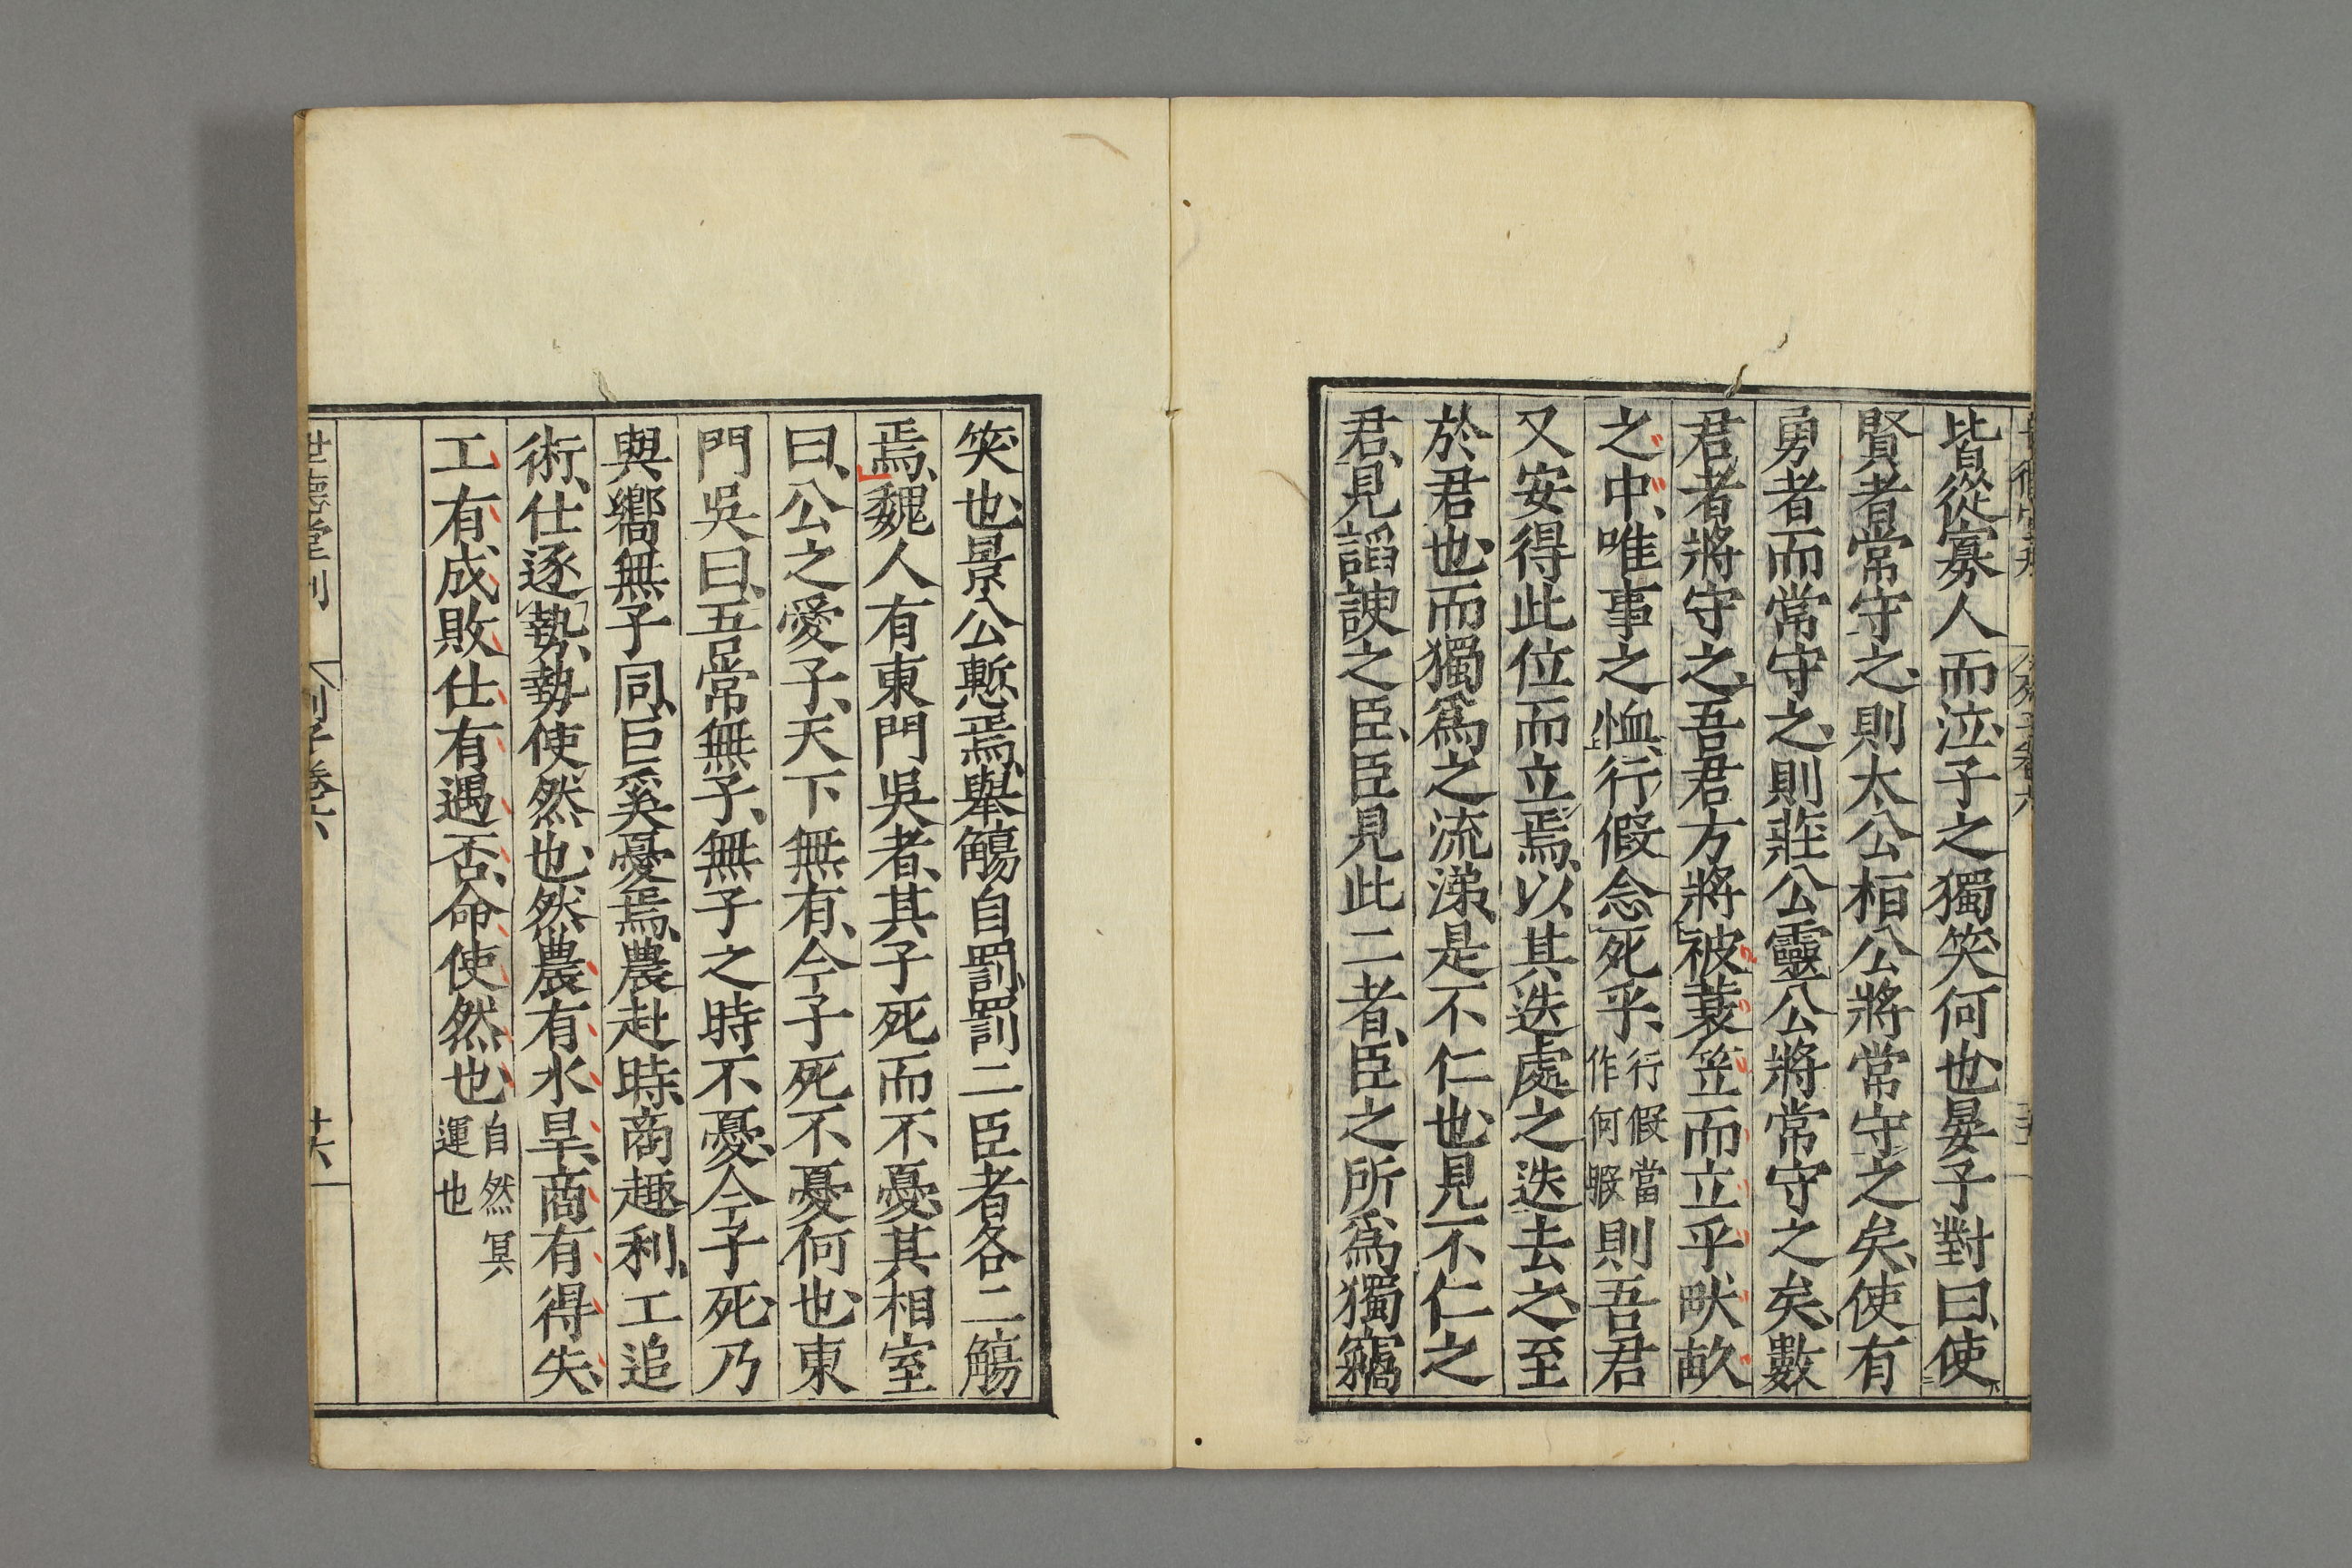 皆從寡人而泣子之獨笑何也晏子對曰使
賢者常守之則太公栢公將常守之矣使有
勇者而常守之則莊公靈公將常守之矣數
君者將守之吾君方將被蓑笠而立乎畎畝
之中唯事之恤行假念死乎行假當作何暇則吾君
又安得此位而立焉以其迭處之迭去之至
於君也而獨爲之流涕是不仁也見不仁之
君見謟諛之臣臣見此二者臣之所爲獨竊
笑也景公慙焉舉觴自罰罰二臣者各二觴
焉魏人有東門吳者其子死而不憂其相室
曰公之愛子天下無有今子死不憂何也東
門吳曰吾常無子無子之時不憂今子死乃
與嚮無子同臣奚憂焉農赴時商趣利工追
術仕逐勢勢使然也然農有水旱商有得失
工有成敗仕有遇否命使然也自然冥運也
世德堂刊 列子卷六 十六